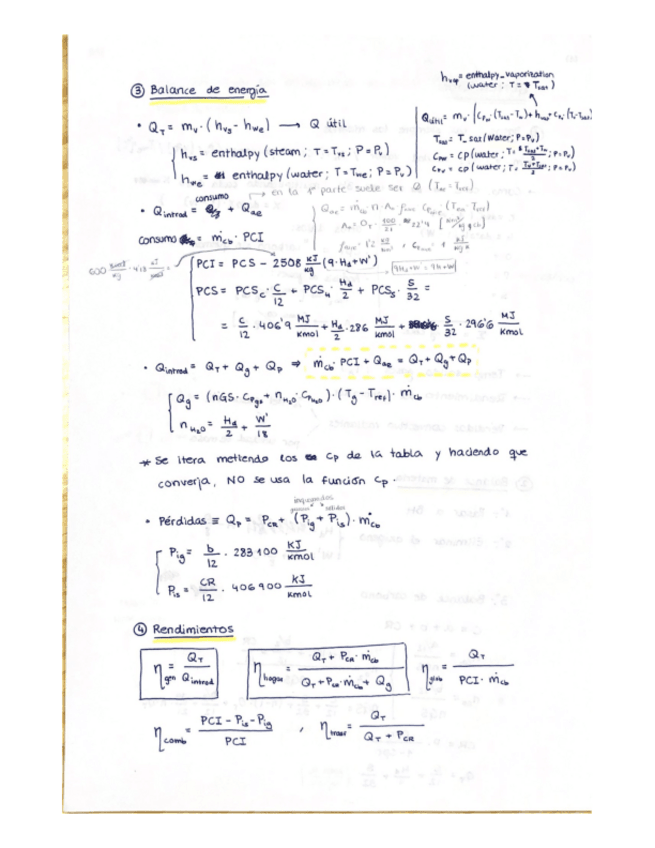 h_vap = enthalpy_vaporization
(water; T = T_sat)
③ Balance de energía
• Q_T = m_v · (h_vs - h_we) → Q útil
h_vs = enthalpy (steam; T = T_vs; P = P_v)
h_we = enthalpy (water; T = T_we; P = P_v)
Q_útil = m_v · (C_pw · (T_sat - T_w) + h_vap + C_pv · (T_v - T_sat)
T_sat = T_sat (water; P = P_v)
C_pw = CP (water; T = ; P = P_v)
C_pv = CP (water; T = ; P = P_v)
→ en la 1ª parte suele ser 0 (T_ae = T_ref)
consumo
• Q_introd = + Q_ae
consumo = ṁ_cb · PCI
PCI = PCS - 2508 kJ/kg (9 · H_d + W')
9H_d + W' = 9H + W
PCS = PCS_C · C/12 + PCS_H · H_d/2 + PCS_S · S/32 =
= C/12 · 406'9 MJ/kmol + H_d/2 · 286 MJ/kmol + S/32 · 296'6 MJ/kmol
• Q_introd = Q_T + Q_g + Q_p ⇒ ṁ_cb · PCI + Q_ae = Q_T + Q_g + Q_p
Q_g = (nGS · C_pgs + n_H2O · C_pH2O) · (T_g - T_ref) · ṁ_cb
n_H2O = H_d/2 + W'/18
* Se itera metiendo los Cp de la tabla y haciendo que
converja, NO se usa la función Cp.
inquemados
gaseosos sólidos
• Pérdidas ≡ Q_p = P_CR + (P_ig + P_is) · ṁ_cb
P_ig = b/12 · 283100 kJ/kmol
P_is = CR/12 · 406900 kJ/kmol
④ Rendimientos
η_gen = Q_T / Q_introd
η_hogar = (Q_T + P_CR · ṁ_cb) / (Q_T + P_CR · ṁ_cb + Q_g)
η_glob = Q_T / (PCI · ṁ_cb)
η_comb = (PCI - P_is - P_ig) / PCI , η_trans = Q_T / (Q_T + P_CR)